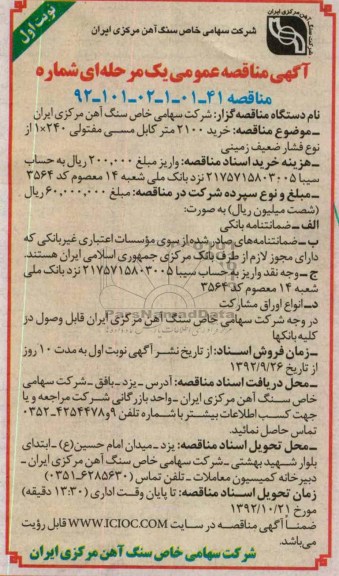 نوبت اول
شرکت سهامی خاص سنگ آهن مرکزی ایران
شرکت سنگ آهن مرکزی ایران
آگهی مناقصه عمومی یک مرحله ای شماره
مناقصه ۴۱-۰۱-۱-۰۲-۱۰۱-۹۲
نام دستگاه مناقصه گزار: شرکت سهامی خاص سنگ آهن مرکزی ایران
ـ موضوع مناقصه: خرید ۲۱۰۰ متر کابل مسی مفتولی ۲۴۰×۱ از
نوع فشار ضعیف زمینی
ـ هزینه خرید اسناد مناقصه: واریز مبلغ ۲۰۰,۰۰۰ ریال به حساب
سیبا ۲۱۷۵۷۱۵۸۰۳۰۰۵ نزد بانک ملی شعبه ۱۴ معصوم کد ۳۵۶۴
ـ مبلغ و نوع سپرده شرکت در مناقصه: مبلغ ۶۰,۰۰۰,۰۰۰ ریال
(شصت میلیون ریال) به صورت:
الف ـ ضمانتنامه بانکی
ب ـ ضمانتنامه‌های صادر شده از سوی مؤسسات اعتباری غیربانکی که
دارای مجوز لازم از طرف بانک مرکزی جمهوری اسلامی ایران هستند.
ج ـ وجه نقد واریز به حساب سیبا ۲۱۷۵۷۱۵۸۰۳۰۰۵ نزد بانک ملی
شعبه ۱۴ معصوم کد ۳۵۶۴
د ـ انواع اوراق مشارکت
در وجه شرکت سهامی خاص سنگ آهن مرکزی ایران قابل وصول در
کلیه بانکها
ـ زمان فروش اسناد: از تاریخ نشر آگهی نوبت اول به مدت ۱۰ روز
از تاریخ ۱۳۹۲/۹/۲۶
ـ محل دریافت اسناد مناقصه: آدرس ـ یزد ـ بافق ـ شرکت سهامی
خاص سنگ آهن مرکزی ایران ـ واحد بازرگانی شرکت مراجعه و یا
جهت کسب اطلاعات بیشتر با شماره تلفن ۹و۴۲۵۴۴۷۸-۰۳۵۲
تماس حاصل نمائید.
ـ محل تحویل اسناد مناقصه: یزد ـ میدان امام حسین(ع) ـ ابتدای
بلوار شهید بهشتی ـ شرکت سهامی خاص سنگ آهن مرکزی ایران ـ
دبیرخانه کمیسیون معاملات ـ تلفن تماس (۶۲۸۵۶۳۰-۰۳۵۱)
زمان تحویل اسناد مناقصه: تا پایان وقت اداری (۱۳:۳۰ دقیقه)
مورخ ۱۳۹۲/۱۰/۲۱
ضمناً آگهی مناقصه در سایت WWW.ICIOC.COM قابل رؤیت
می‌باشد.
شرکت سهامی خاص سنگ آهن مرکزی ایران
ParsNamadData